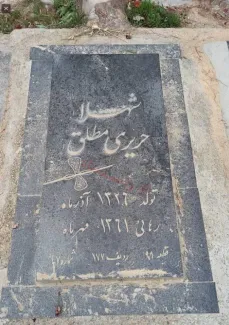 شهلا
حریری مطلق
تولد ۱۳۳۶ آذرماه
رهائی ۱۳۶۱ مهرماه
قطعه ۹۱ ردیف ۱۱۷